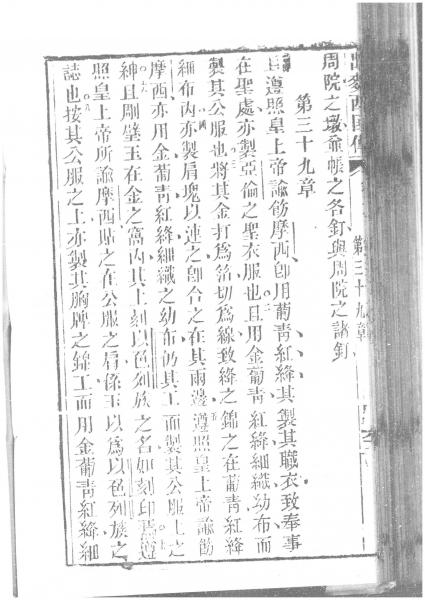 周院之墩並帳之各釘與周院之諸釘
第三十九章
且遵照皇上帝諭飭摩西卽用葡青紅絳其製其職衣致奉事
在聖處亦製亞倫之聖衣服也且用金葡青紅絳細織幼布而
製其公服也將其金打爲箔切爲線致絳之錦之在葡青紅絳
細布内亦製肩塊以連之卽合之在其兩邊遵照皇上帝諭飭
摩西亦用金葡青紅絳細織之幼布仍其工而製其公服上之
紳且剛璧玉在金之窩内其上刻以色列族之名如刻印焉遵
照皇上帝所諭摩西貼之在公服之肩係玉以爲以色列族之
誌也按其公服之上亦製其胸牌之錦工而用金葡青紅絳細
第三十九章